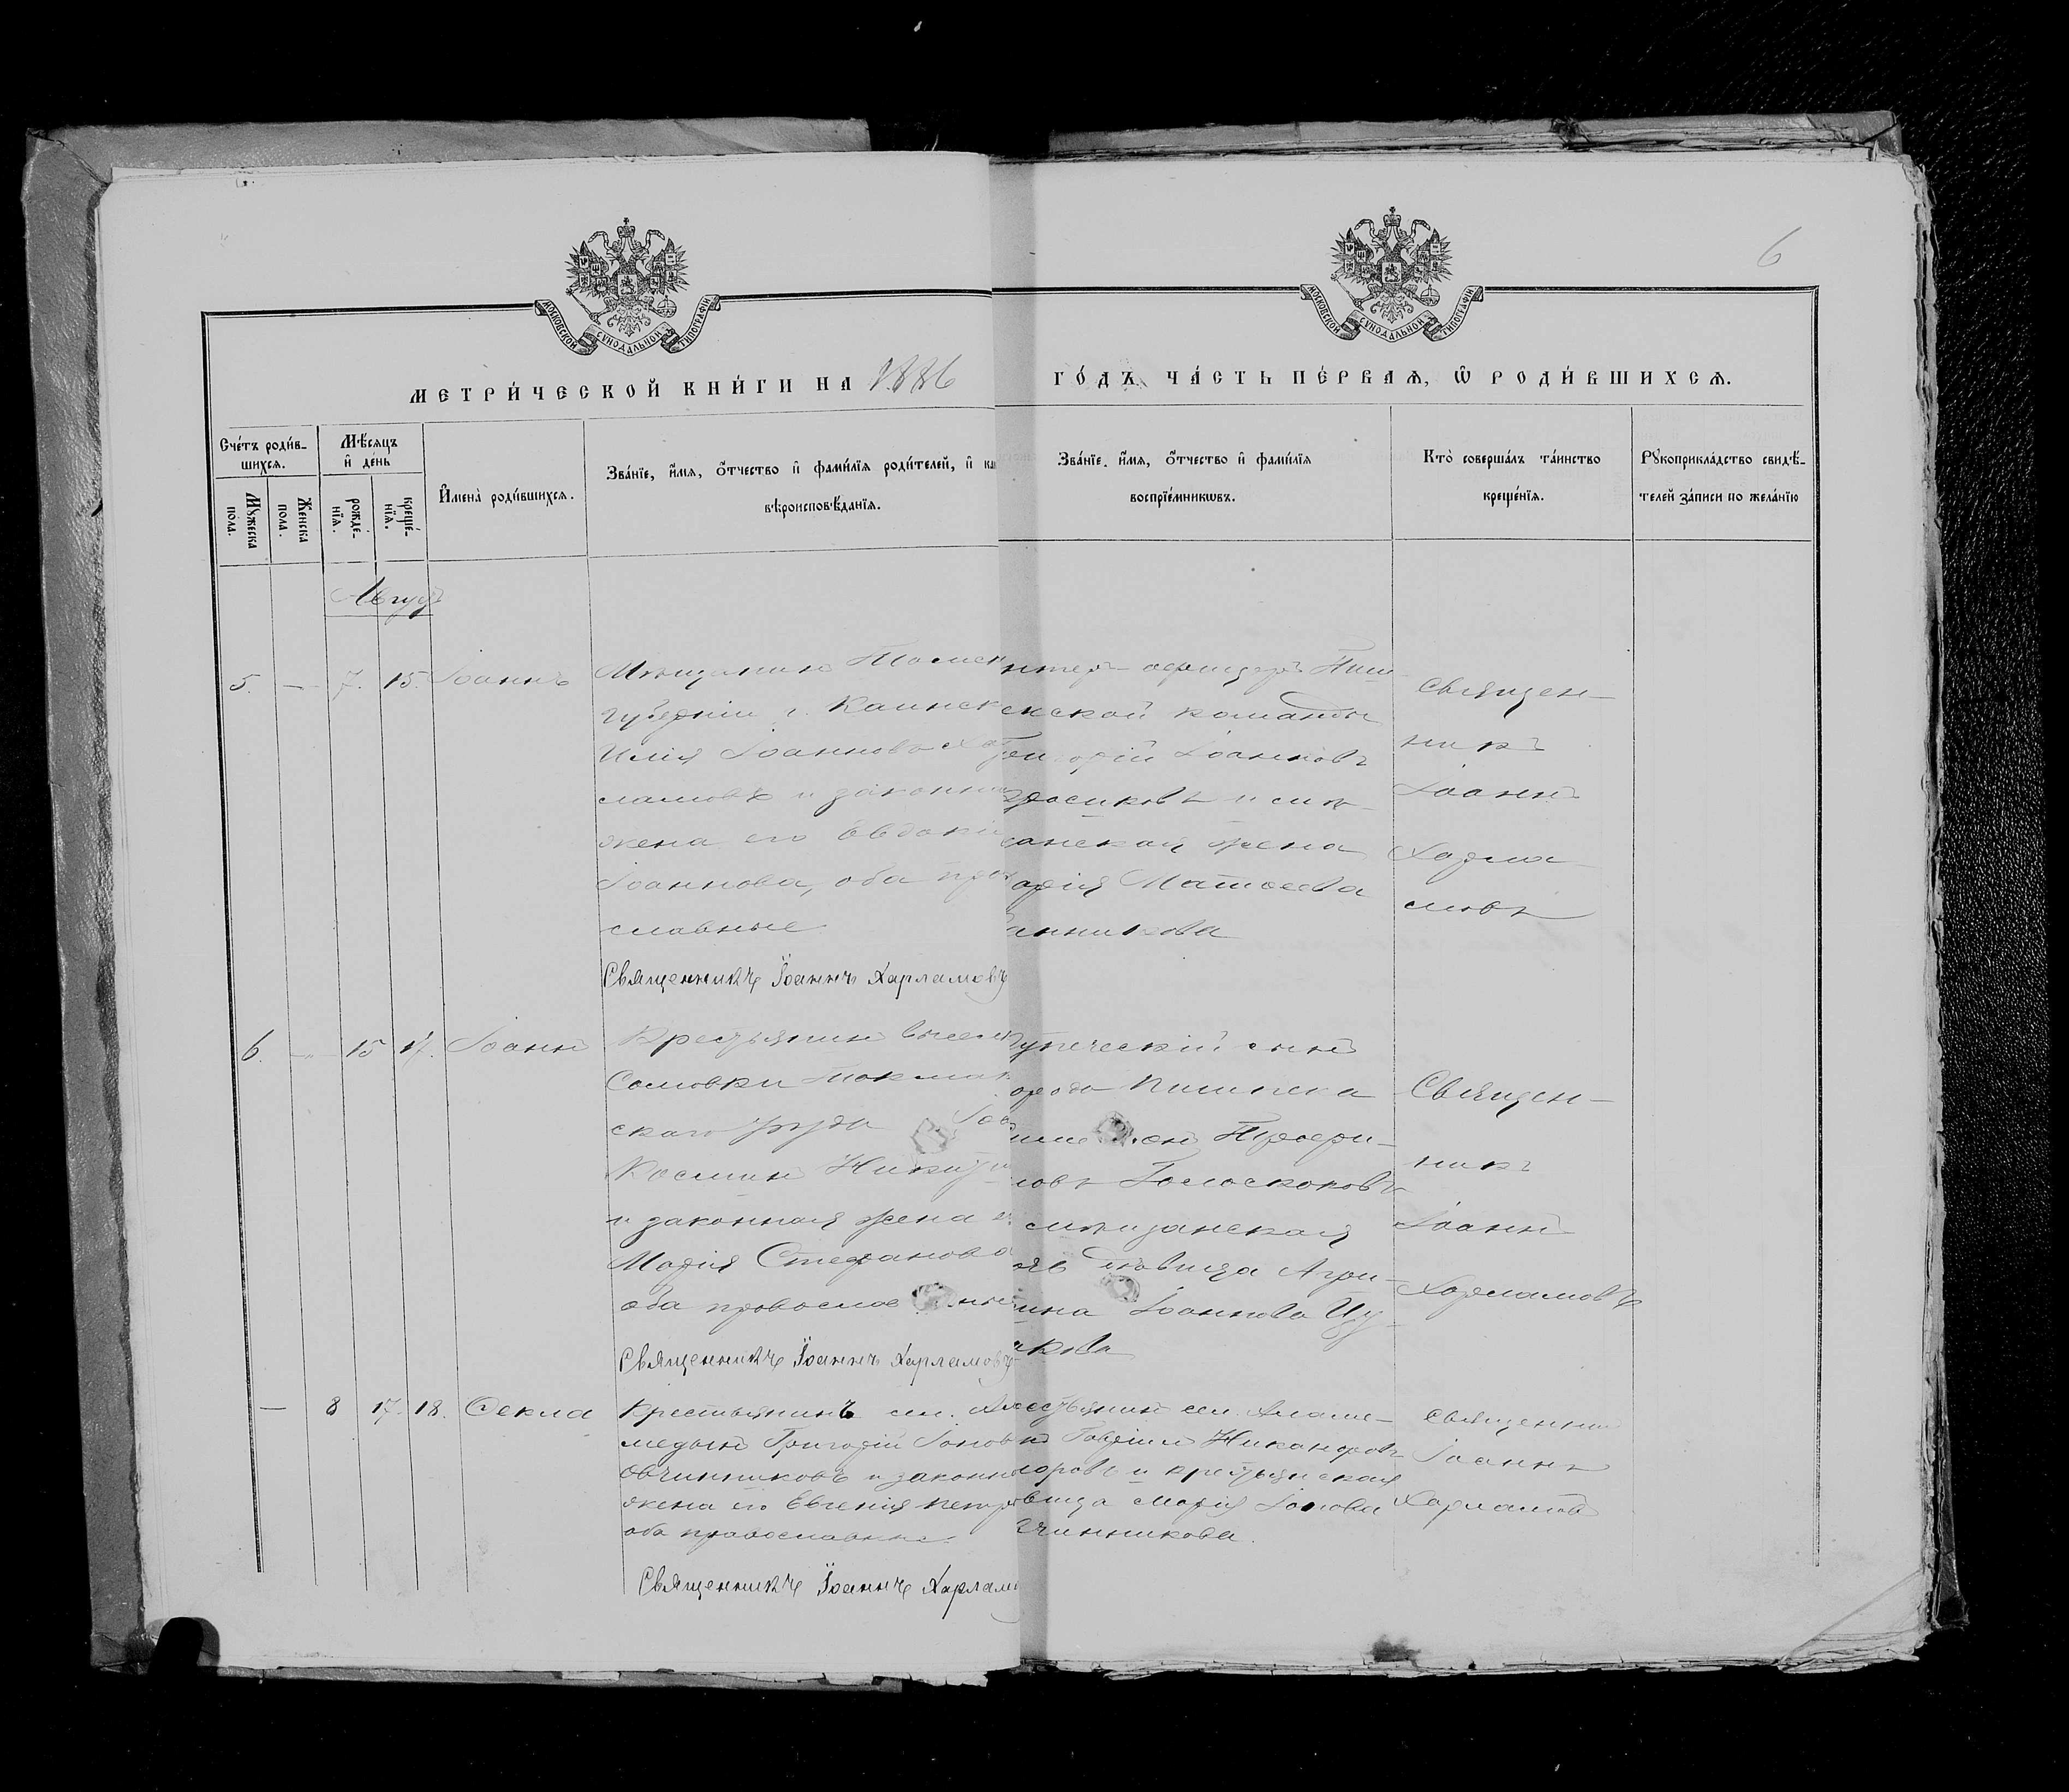 6
МОСКОВСКОЙ СУНОДАЛЬНОЙ ТИПОГРАФІИ
МОСКОВСКОЙ СУНОДАЛЬНОЙ ТИПОГРАФІИ
МЕТРИ́ЧЕСКОЙ КНИ́ГИ НА 1886
ГО́ДЪ, ЧА́СТЬ ПЕ́РВАѦ, Ѽ РОДИ́ВШИХСѦ.
Сче́тъ роди́в-
шихсѧ.
Мꙋжеска
пола.
Женска
пола.
Мѣ́сѧцъ
и҆ де́нь
рожде́-
нїѧ.
креще́-
нїѧ.
И҆мена̀ роди́вшихсѧ.
Зва́нїе, и҆́мѧ, ѻ҆́тчество и҆ фами́лїѧ роди́телей, и҆ ка
вѣроисповѣ́данїѧ.
Зва́нїе, и҆́мѧ, ѻ҆́тчество и҆ фами́лїѧ
воспрїе́мникѡвъ.
Кто̀ соверша́лъ та́инство
креще́нїѧ.
Рꙋкоприкла́дство свидѣ́-
телей за́писи по жела́нїю
Август
5. — 7. 15. Іоаннъ
Мѣщанинъ Томск
губерніи г. Каинск
Илія Іоанновъ Хар
ламовъ и законная
жена его Евдокія
Іоаннова, оба пра
славные
Священникъ Іоаннъ Харламовъ
нтеръ-офицеръ Пиш
екской команды
Григорій Іоанновъ
и мѣ-
щанская жена
арія Матѳеева
анникова
Священ-
никъ
Іоаннъ
Харла-
мовъ
6. — 15 17. Іоаннъ
Крестьянинъ выселк
Токмак
скаго уѣзда
Косминъ Никит
и законная жена е
Марія Стефанова
оба православные
Священникъ Іоаннъ Харламовъ
упеческій сынъ
орода Пишпека
Прокофи-
ловъ Голоскоковъ
мѣщанская
дѣвица Агри-
ина Іоаннова Цу-
кова
Священ-
никъ
Іоаннъ
Харламовъ
— 8 17. 18. Ѳекла
Крестьянинъ сел. Ала
мединъ Григорій Іоновъ
Овчинниковъ и законная
жена его Евгенія Петро
оба православные.
Священникъ Іоаннъ Харлам
естьянинъ сел. Аламе-
нъ Гавріилъ Никаноровъ
оровъ и крестьянская
вица Марія Іонова
чинникова.
Священник
Іоаннъ
Харламовъ